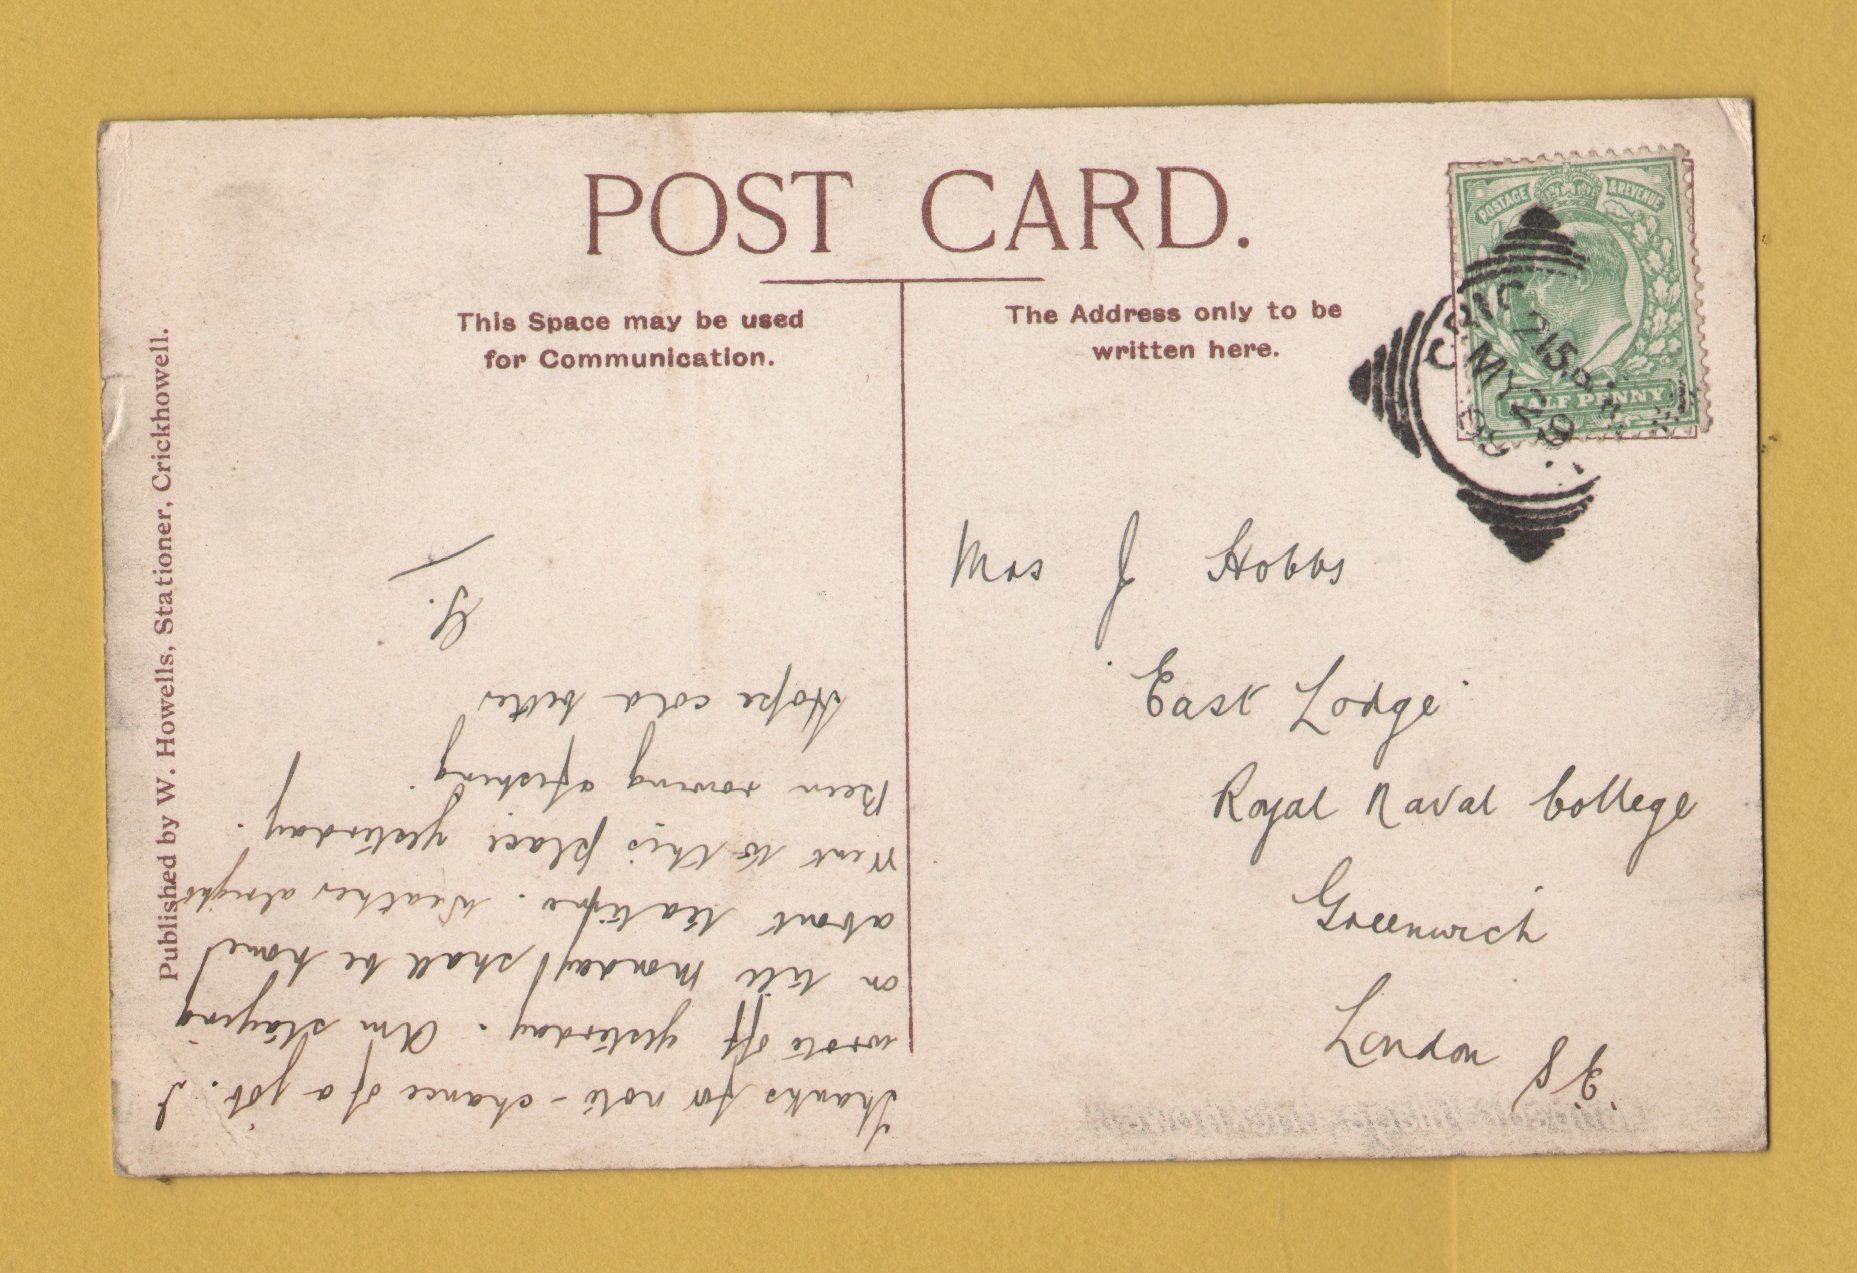 POST CARD.
This Space may be used
for Communication.
The Address only to be
written here.
POSTAGE & REVENUE
HALF PENNY
CRIC
215 P
MY 29
09
Mrs J Hobbs
East Lodge
Royal Naval College
Greenwich
London S.E.
Thanks for note - chance of a job. I
wrote off yesterday. Am staying
on till Monday shall be home
about teatime. Weather alright
Went to this place yesterday.
Been rowing & fishing
Hope cold better
G.
Published by W. Howells, Stationer, Crickhowell.